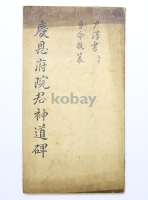 尹澤書
曹命敎篆
慶恩府院君神道碑
kobay